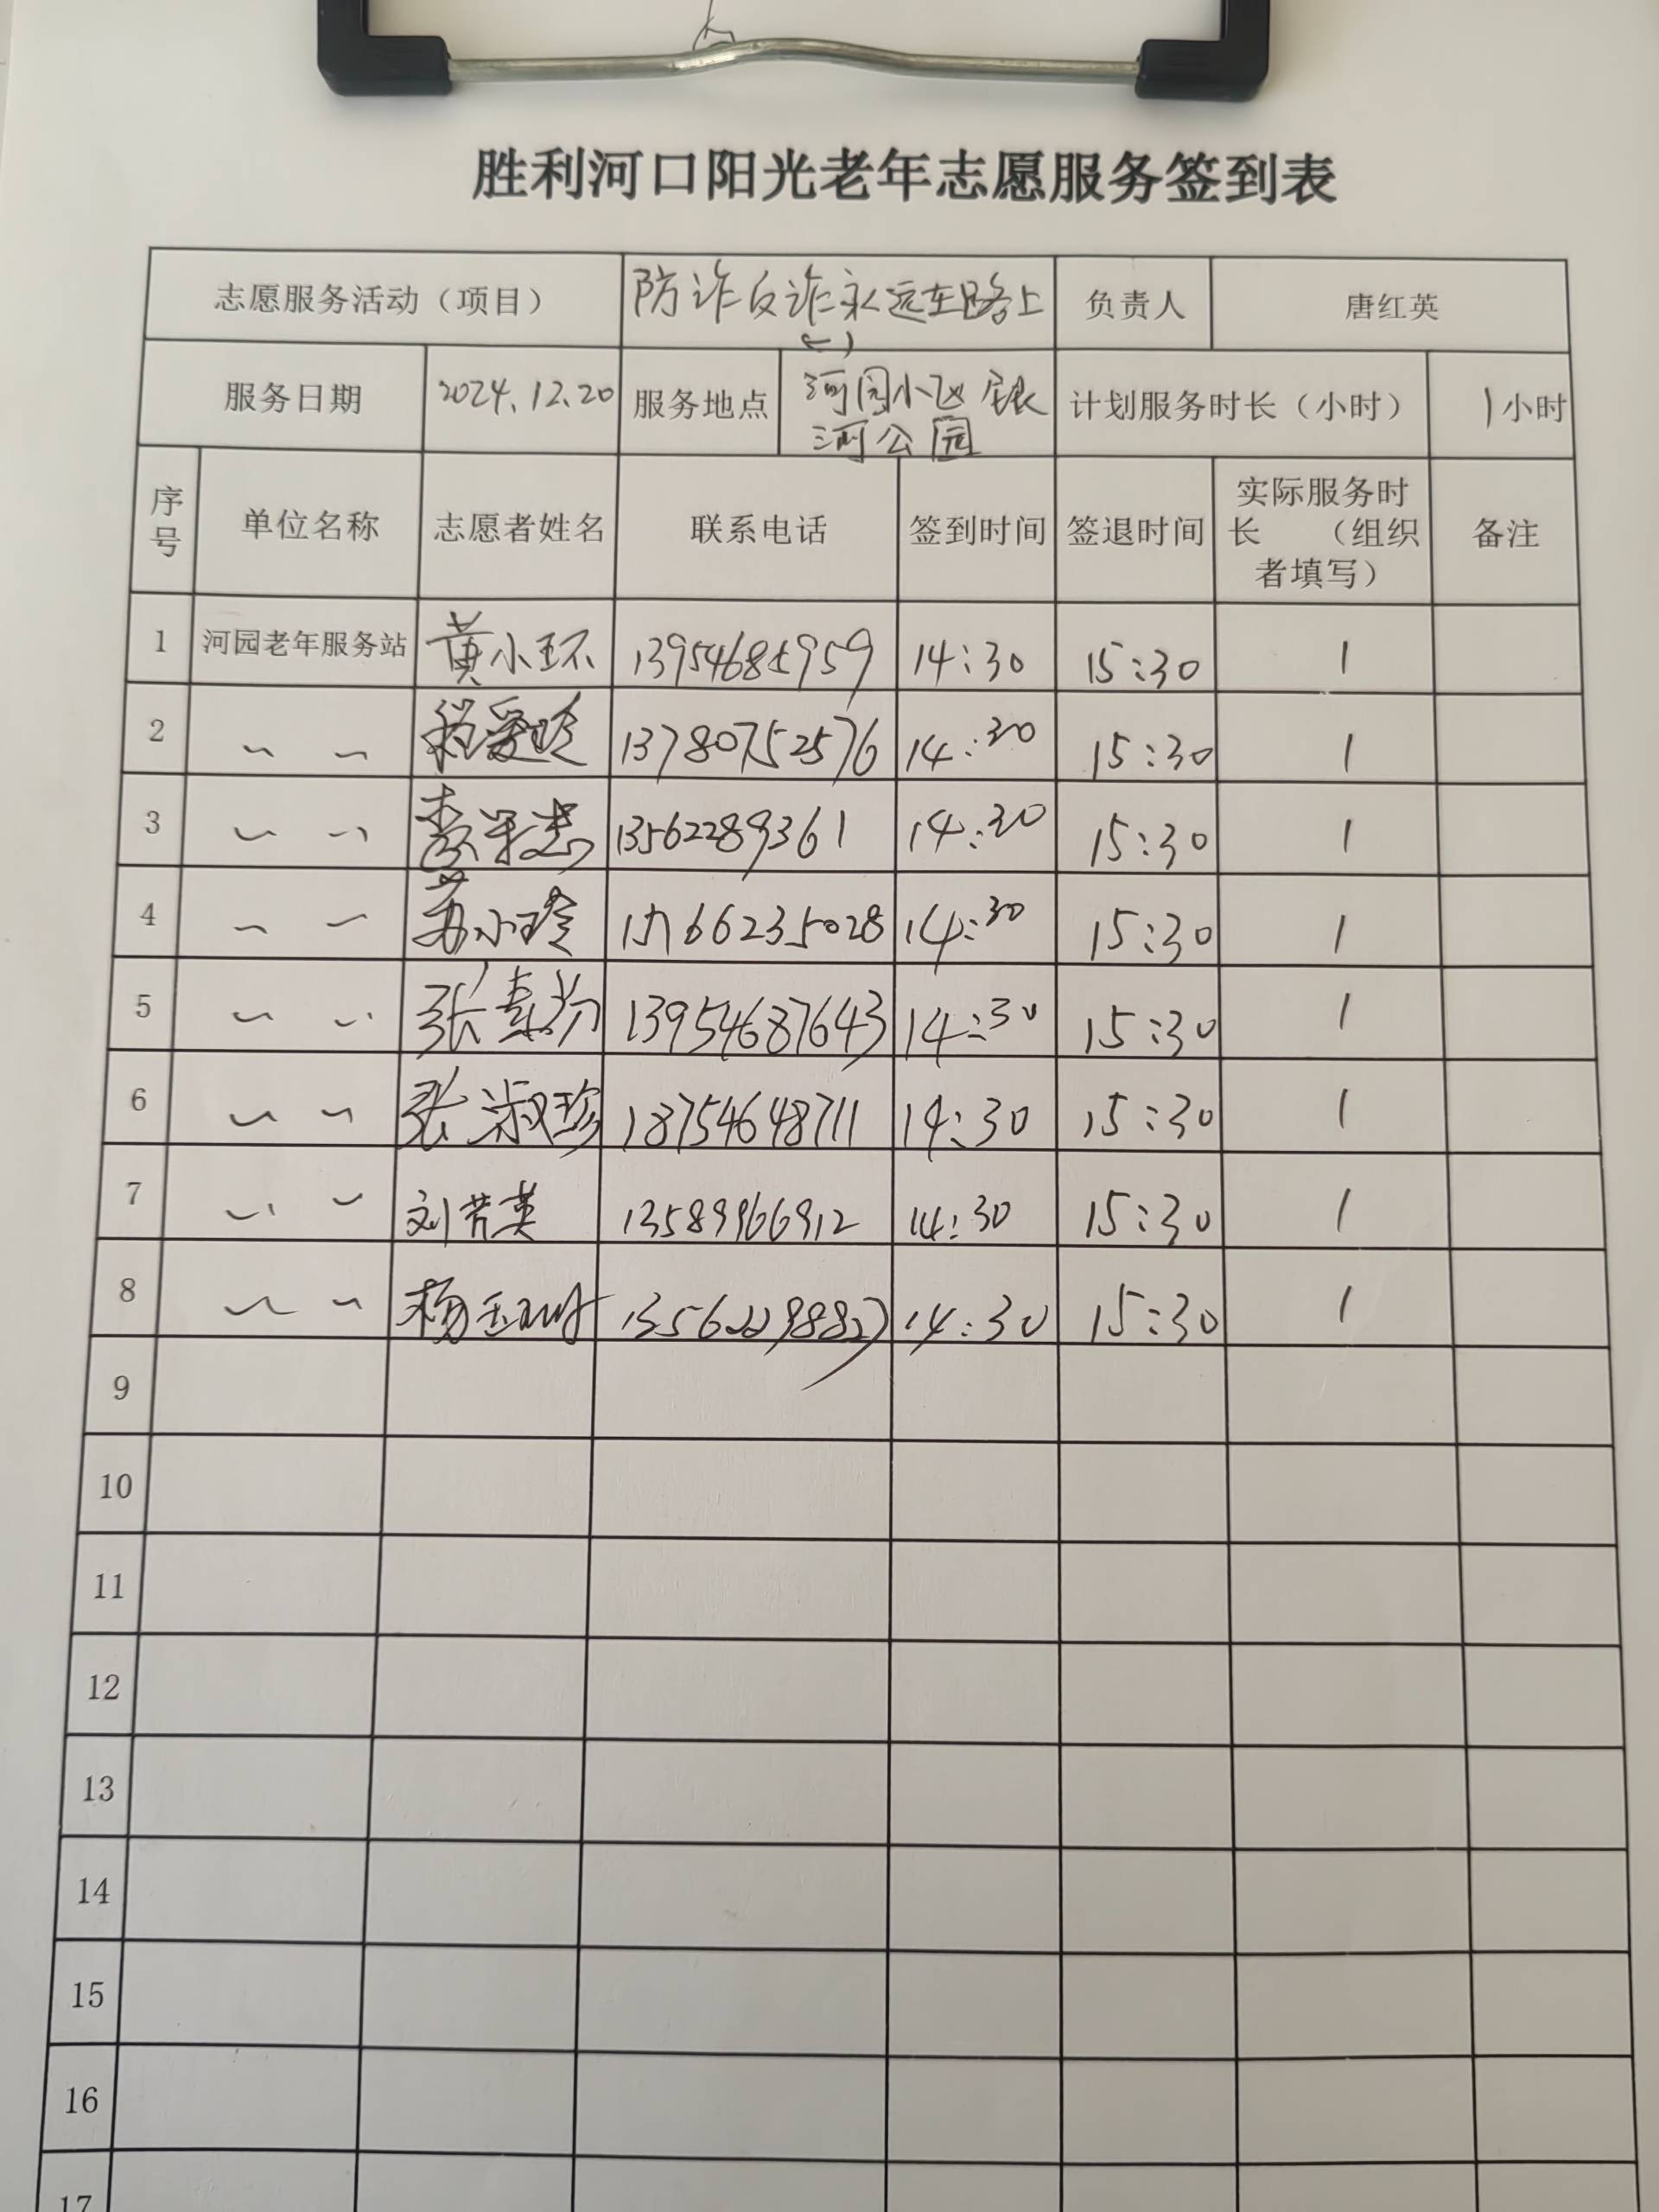 胜利河口阳光老年志愿服务签到表
志愿服务活动（项目） 防诈反诈永远在路上 负责人 唐红英
(一)
服务日期 2024.12.20 服务地点 河园小区 银 计划服务时长（小时） 1小时
河公园
序号 单位名称 志愿者姓名 联系电话 签到时间 签退时间 实际服务时长 （组织者填写） 备注
1 河园老年服务站 黄小环 13954685959 14:30 15:30 1
2 爱玲 13780752576 14:30 15:30 1
3 13562289361 14:30 15:30 1
4 苏小玲 66235028 14:30 15:30 1
5 张素芬 13954687643 14:30 15:30 1
6 张淑珍 18754648711 14:30 15:30 1
7 刘芳英 13589966912 14:30 15:30 1
8 杨玉 14:30 15:30 1
9
10
11
12
13
14
15
16
17